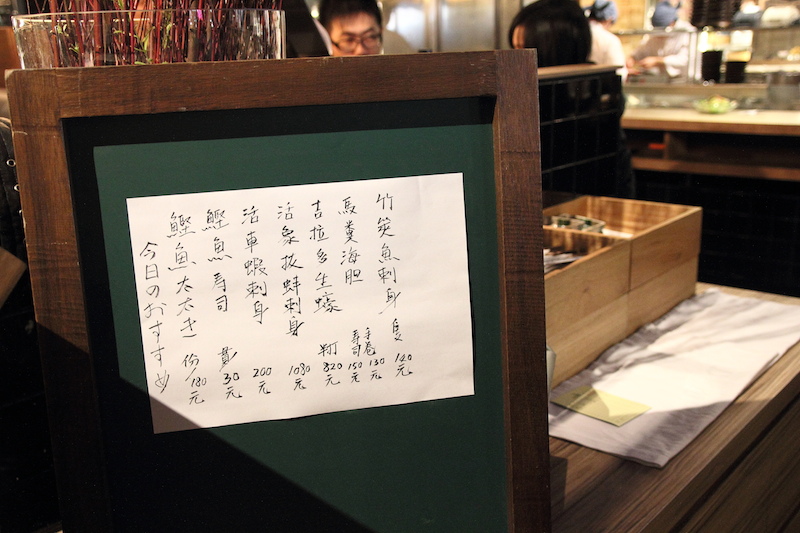 竹筴魚刺身 隻 元
馬糞海胆 手卷 130元
寿司 150元
吉拉多生蠔 半打 820元
活象拔蚌刺身 1080元
活車蝦刺身 200元
鰹魚寿司 貫 30元
鰹魚太太き 份 180元
今日のおすすめ